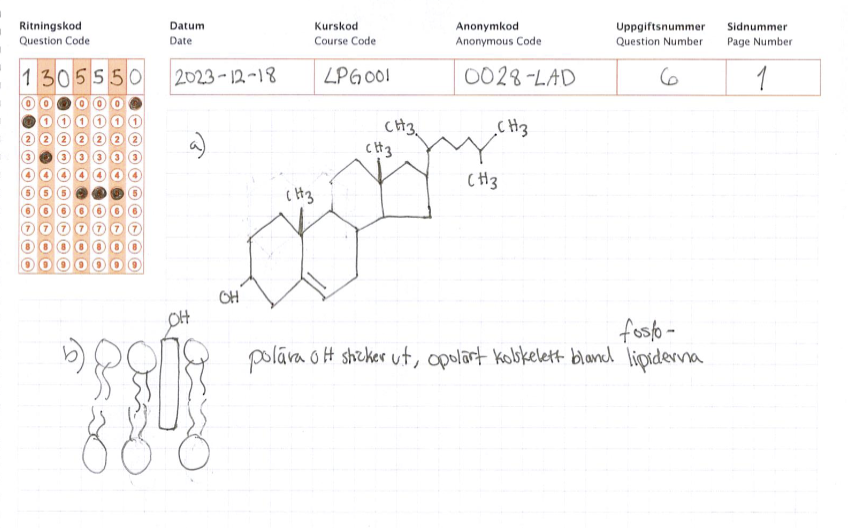 Ritningskod Datum Kurskod Anonymkod Uppgiftsnummer Sidnummer
Question Code Date Course Code Anonymous Code Question Number Page Number
1305550 2023-12-18 LPG001 0028-LAD 6 1
0 0 0 0 0 0
1 1 1 1 1 1
2 2 2 2 2 2 2
3 3 3 3 3 3
4 4 4 4 4 4 4
5 5 5 5
6 6 6 6 6 6 6
7 7 7 7 7 7 7
8 8 8 8 8 8 8
9 9 9 9 9 9 9
a)
CH3 CH3
CH3
CH3
CH3
OH
OH
b) polära OH sticker ut, opolärt kolskelett bland fosfo-
lipiderna